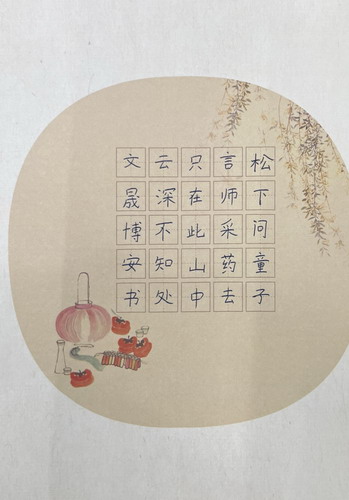 松下问童子
言师采药去
只在此山中
云深不知处
文晟博安书